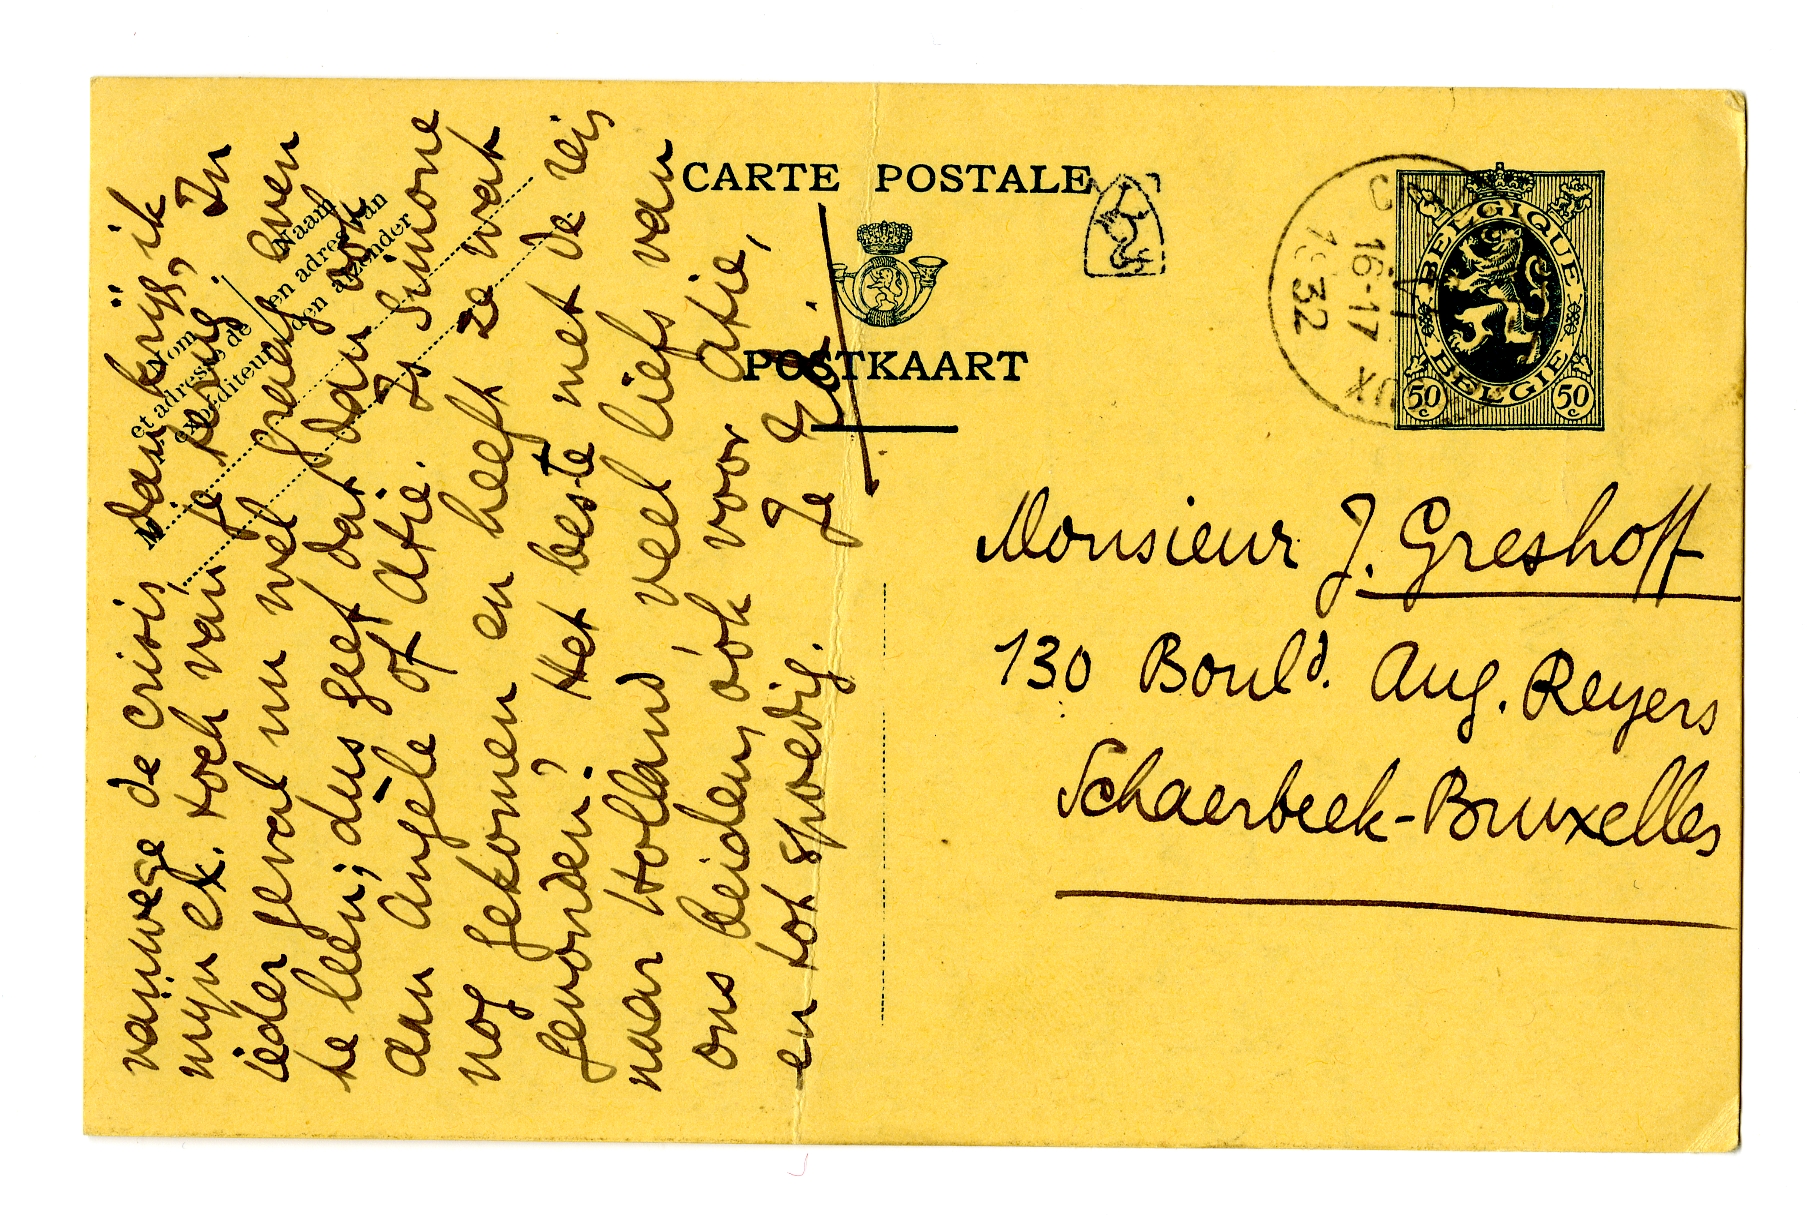 vanwege de crisis dan krijg ik
mijn ex. toch van je terug. In
ieder geval nu wel graag even
te leen; dus geef dat dan ook
aan Angèle of Atie. Is Simone
nog gekomen en heeft ze wat
gevonden? Het beste met de reis
naar Holland, veel liefs van
ons beiden, óók voor Atie,
en tot spoedig. Je E.
Nom
et adresse de
expéditeur
Naam
en adres van
den afzender
CARTE POSTALE
POSTKAART
BELGIQUE
BELGIE
50 c
50 c
16-17
VI
32
Monsieur J. Greshoff
130 Bould. Aug. Reyers
Schaerbeek-Bruxelles